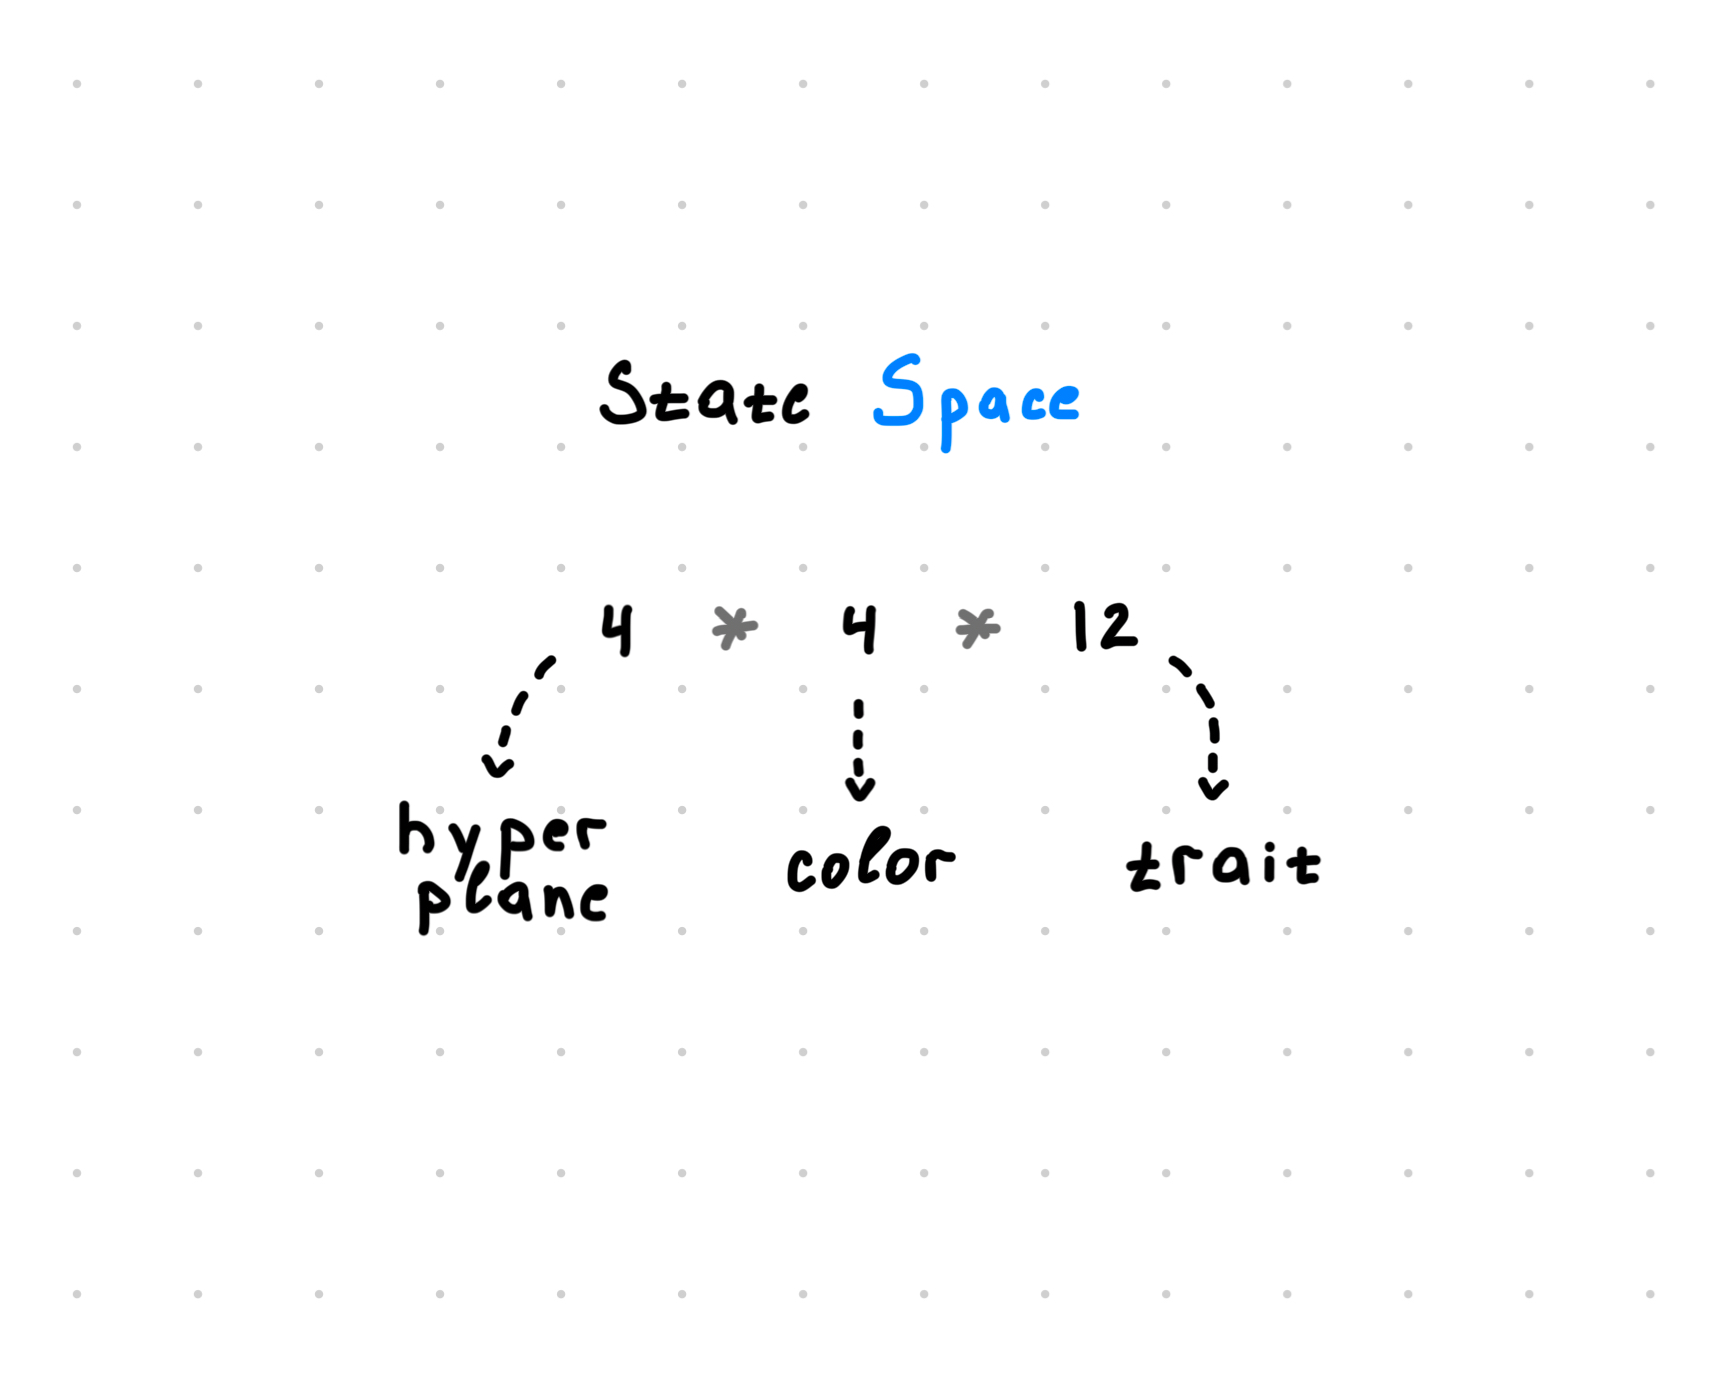 State Space
4 * 4 * 12
hyper
plane
color
trait